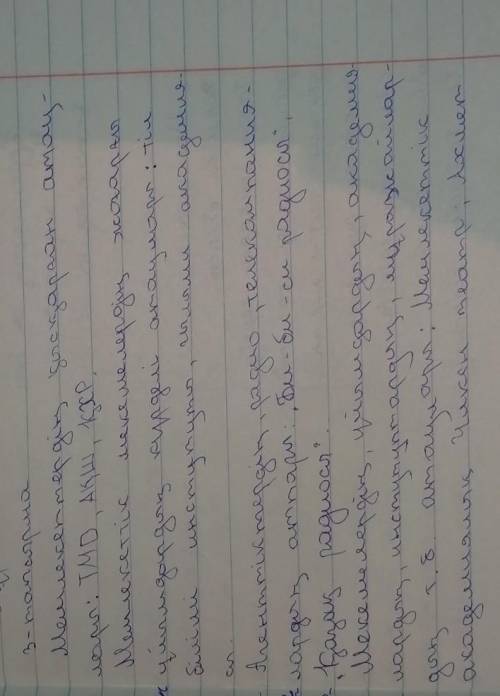 3-тапсырма
Мемлекеттердің қысқарған атау-
лары: ТМД, АҚШ, ҚХР.
Мемлекеттік мекемелердің, жоғарғы
ұйымдардың күрделі атаулары: Тіл
білімі институты, ғылыми академия-
сы.
Агенттіктердің, радио, телекомпания-
лардың аттары: „Би-би-си радиосы",
„Қазақ радиосы".
Мекемелердің, ұйымдардың, академия-
лардың, институттардың, мұражайлар-
дың т.б. атаулары: Мемлекеттік
академиялық Үлкен театр, Ахмет